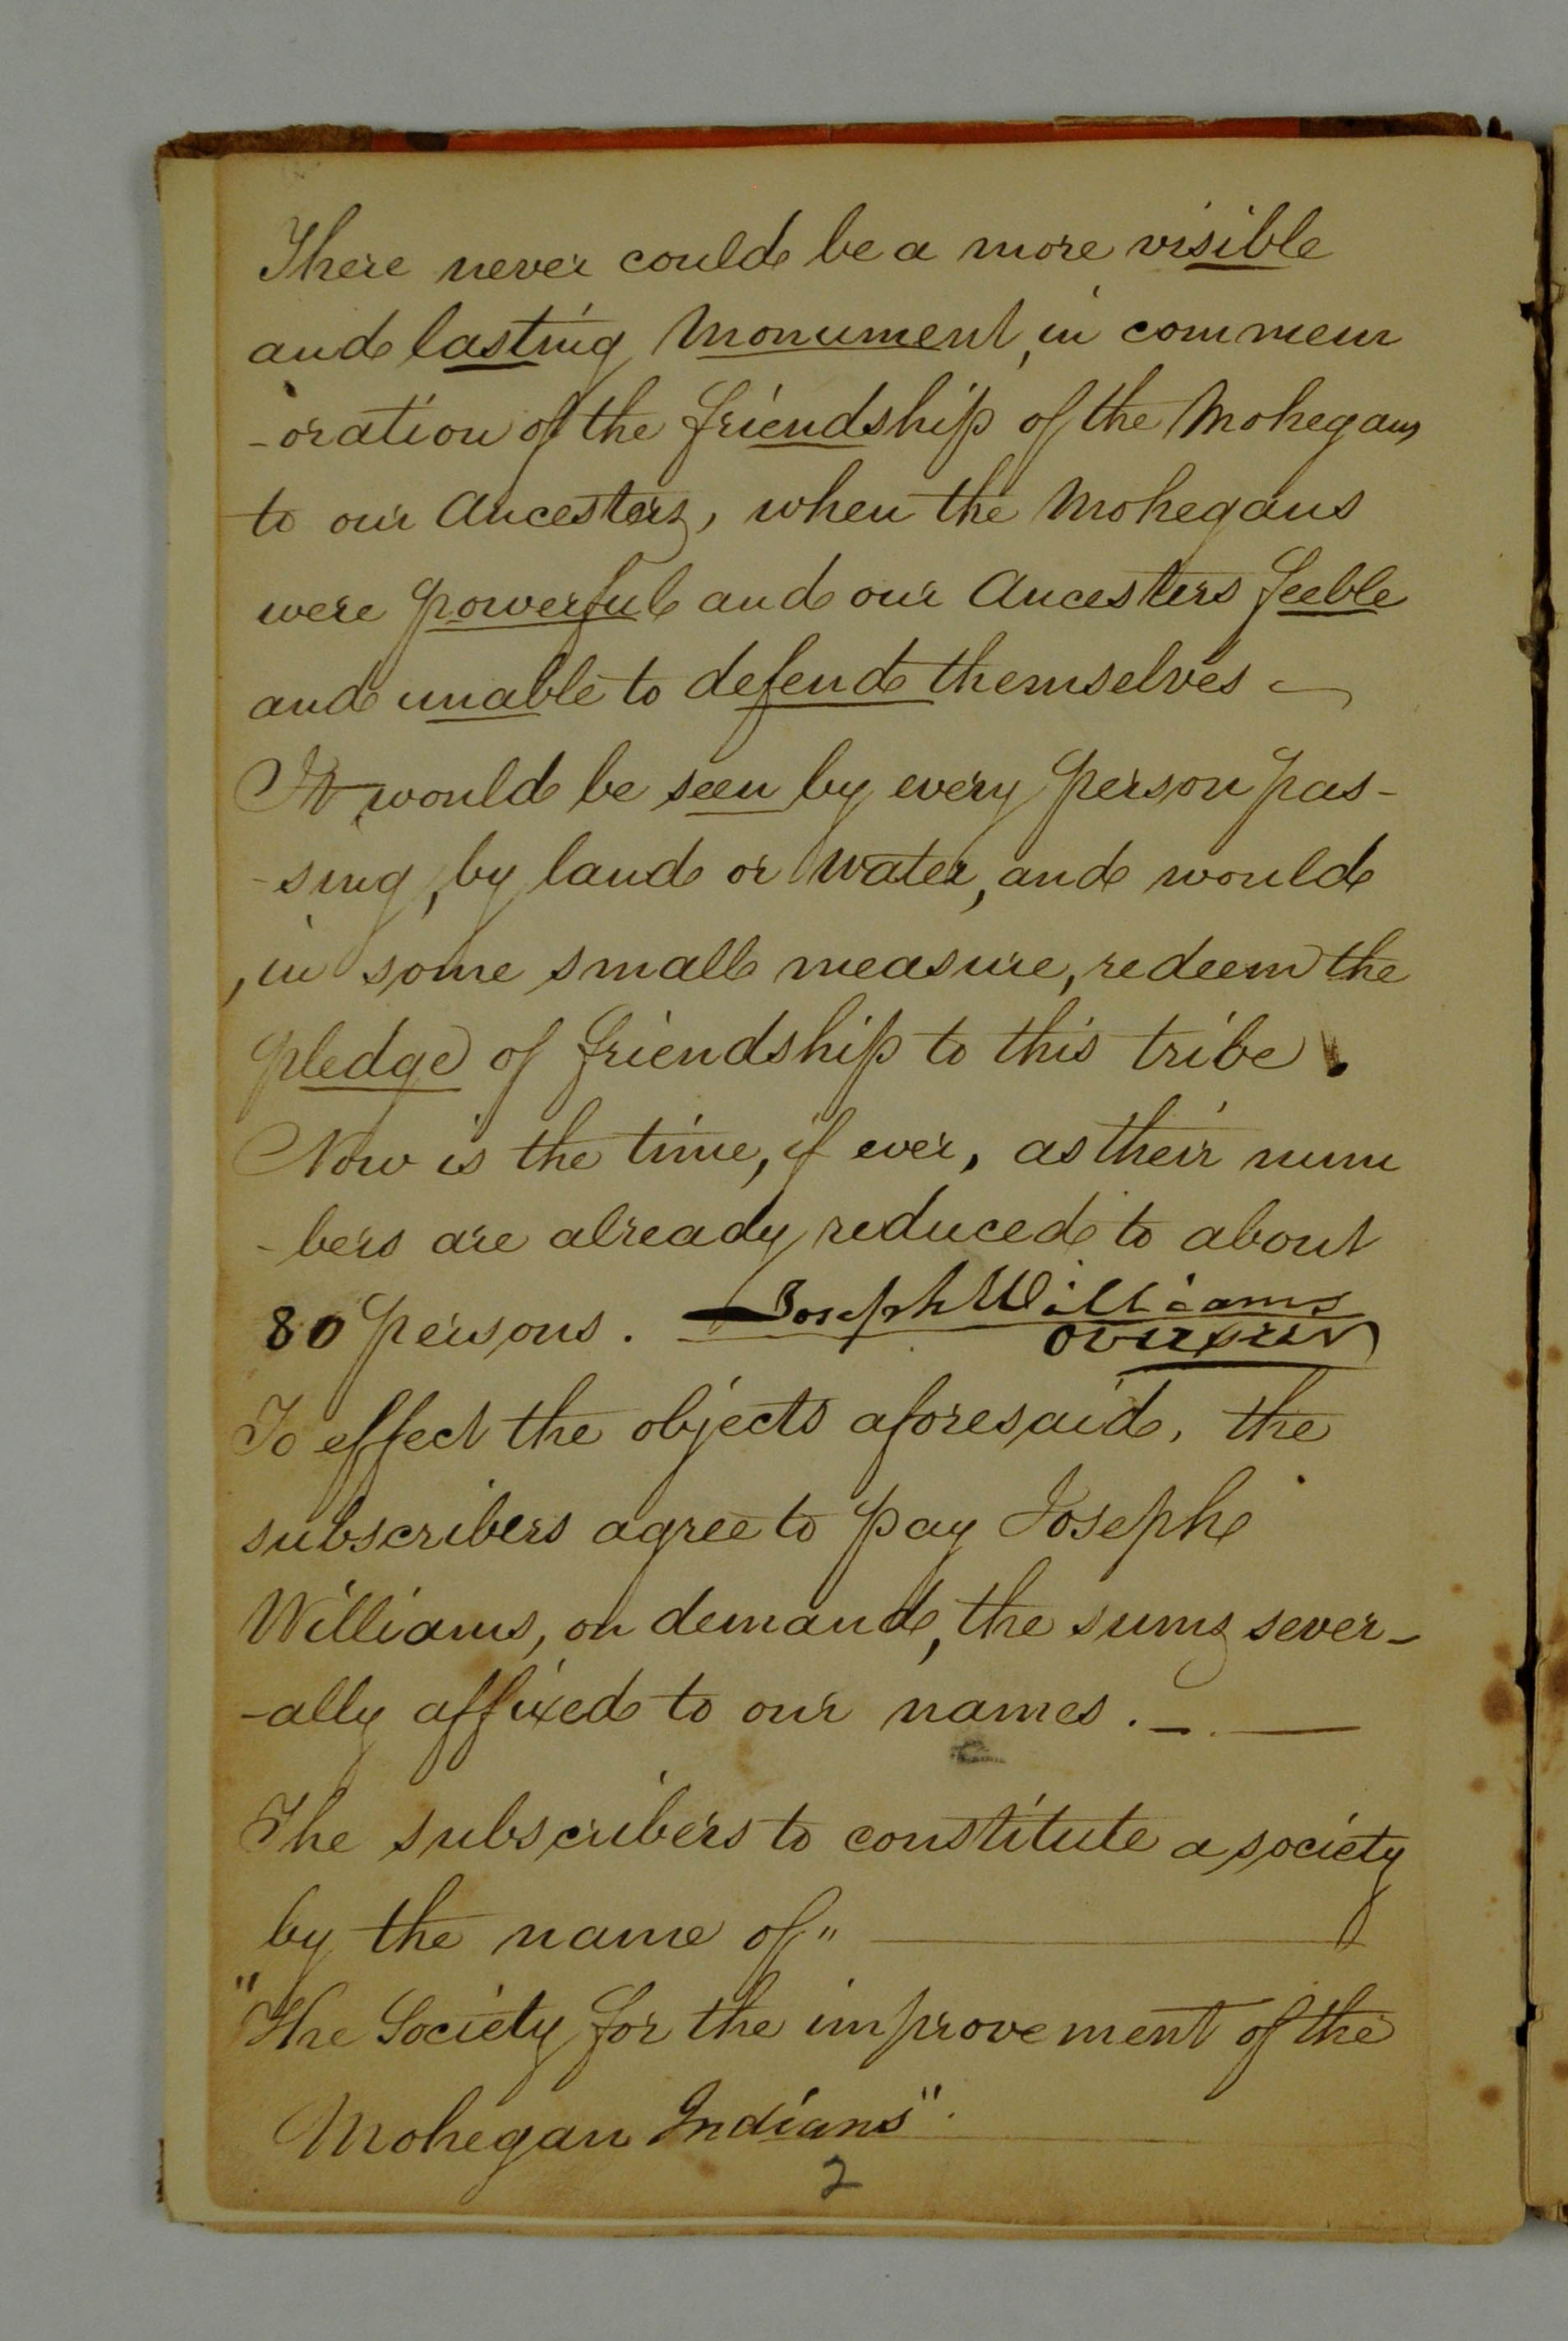 There never could be a more visible
and lasting Monument, in commem
-oration of the friendship of the Mohegans
to our Ancesters, when the Mohegans
were powerful and our Ancesters feeble
and unable to defend themselves —
It would be seen by every person pas-
-sing, by land or water, and would
, in some small measure, redeem the
pledge of friendship to this tribe.
Now is the time, if ever, as their num
-bers are already reduced to about
80 persons. — Joseph Williams
overseer
To effect the objects aforesaid, the
subscribers agree to pay Joseph
Williams, on demand, the sums sever-
-ally affixed to our names. — . —
The subscribers to constitute a society
by the name of " —
"The Society for the improvement of the
Mohegan Indians".
2